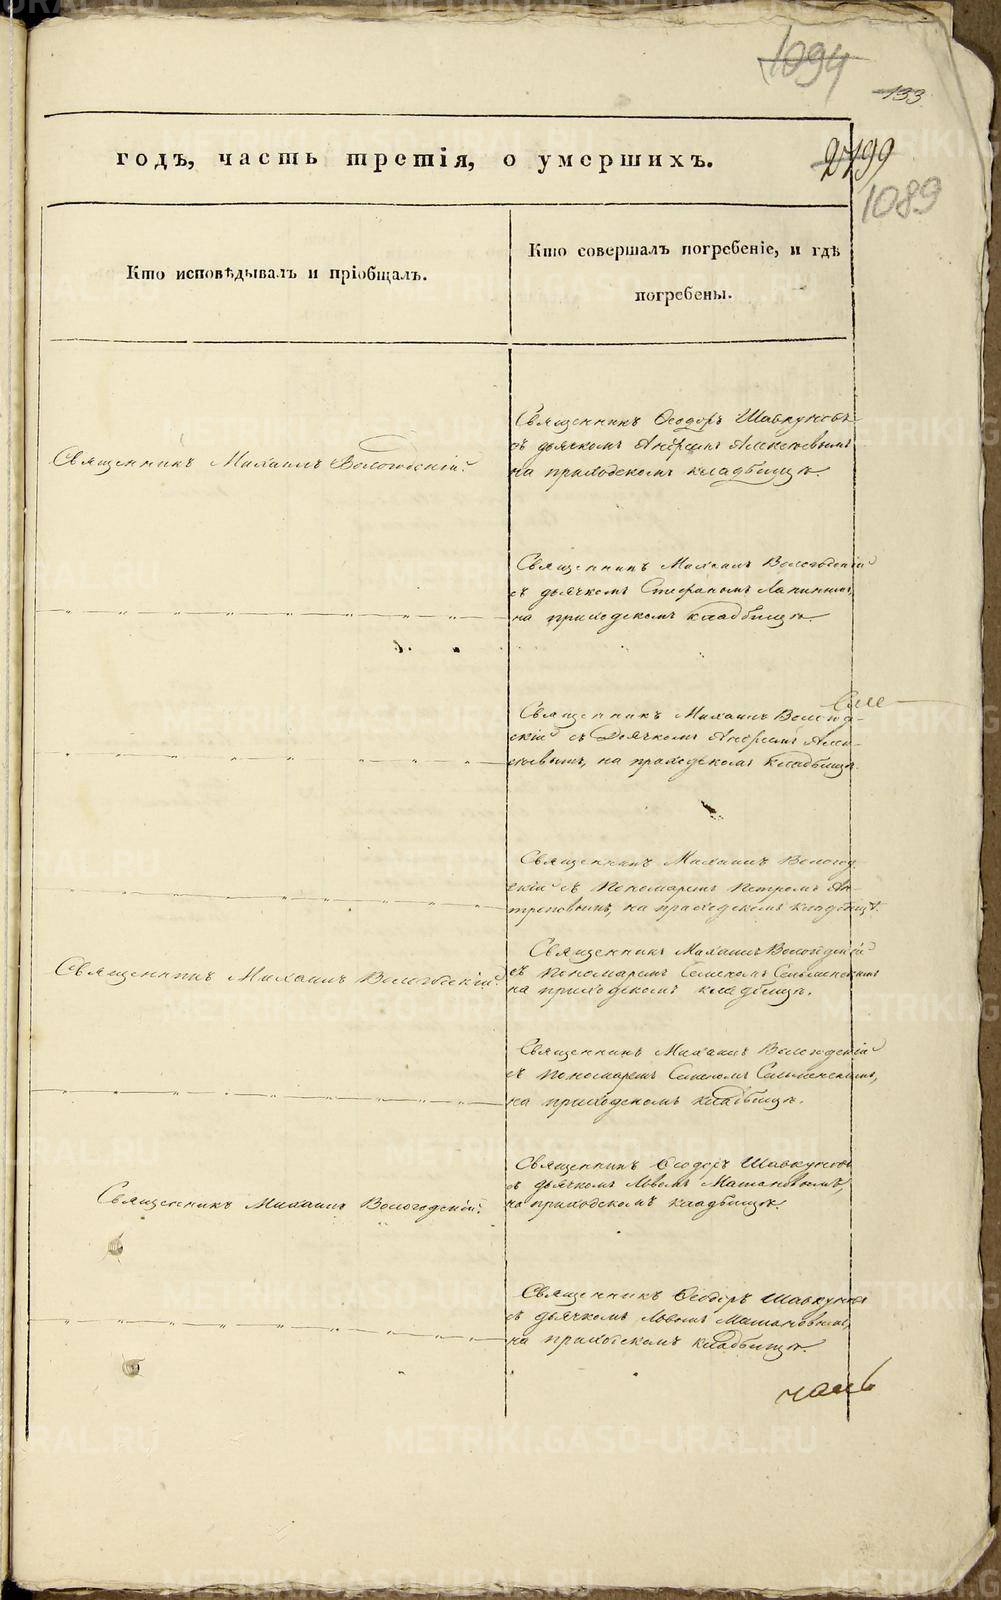 1094
133
годъ, часть третія, о умершихъ.
2799
1089
Кто исповѣдывалъ и пріобщалъ.
Кто совершалъ погребеніе, и гдѣ
погребены.
Священникъ Михаилъ Вологодскій.
Священникъ Ѳеодоръ Шавкуновъ
съ дьячкомъ Андреемъ Алексѣевымъ
на приходскомъ кладбищѣ.
Священникъ Михаилъ Вологодскій
съ дьячкомъ Стефаномъ Лапинымъ,
на приходскомъ кладбищѣ.
Священникъ Михаилъ Вологод-
скій съ Дьячкомъ Андреемъ Алек-
сѣевымъ, на приходскомъ кладбищѣ.
Священникъ Михаилъ Вологод-
скій съ Пономаремъ Петромъ Ан-
на приходскомъ кладбищѣ.
Священникъ Михаилъ Вологодскій.
Священникъ Михаилъ Вологодскій
съ Пономаремъ
на приходскомъ кладбищѣ.
Священникъ Михаилъ Вологодскій
съ Пономаремъ
на приходскомъ кладбищѣ.
Священникъ Михаилъ Вологодскій.
Священникъ Ѳеодоръ Шавкуновъ
съ дьячкомъ Львомъ
на приходскомъ кладбищѣ.
Священникъ Ѳеодоръ Шавкуновъ
съ дьячкомъ Львомъ
на приходскомъ кладбищѣ.
METRIKI.GASO-URAL.RU